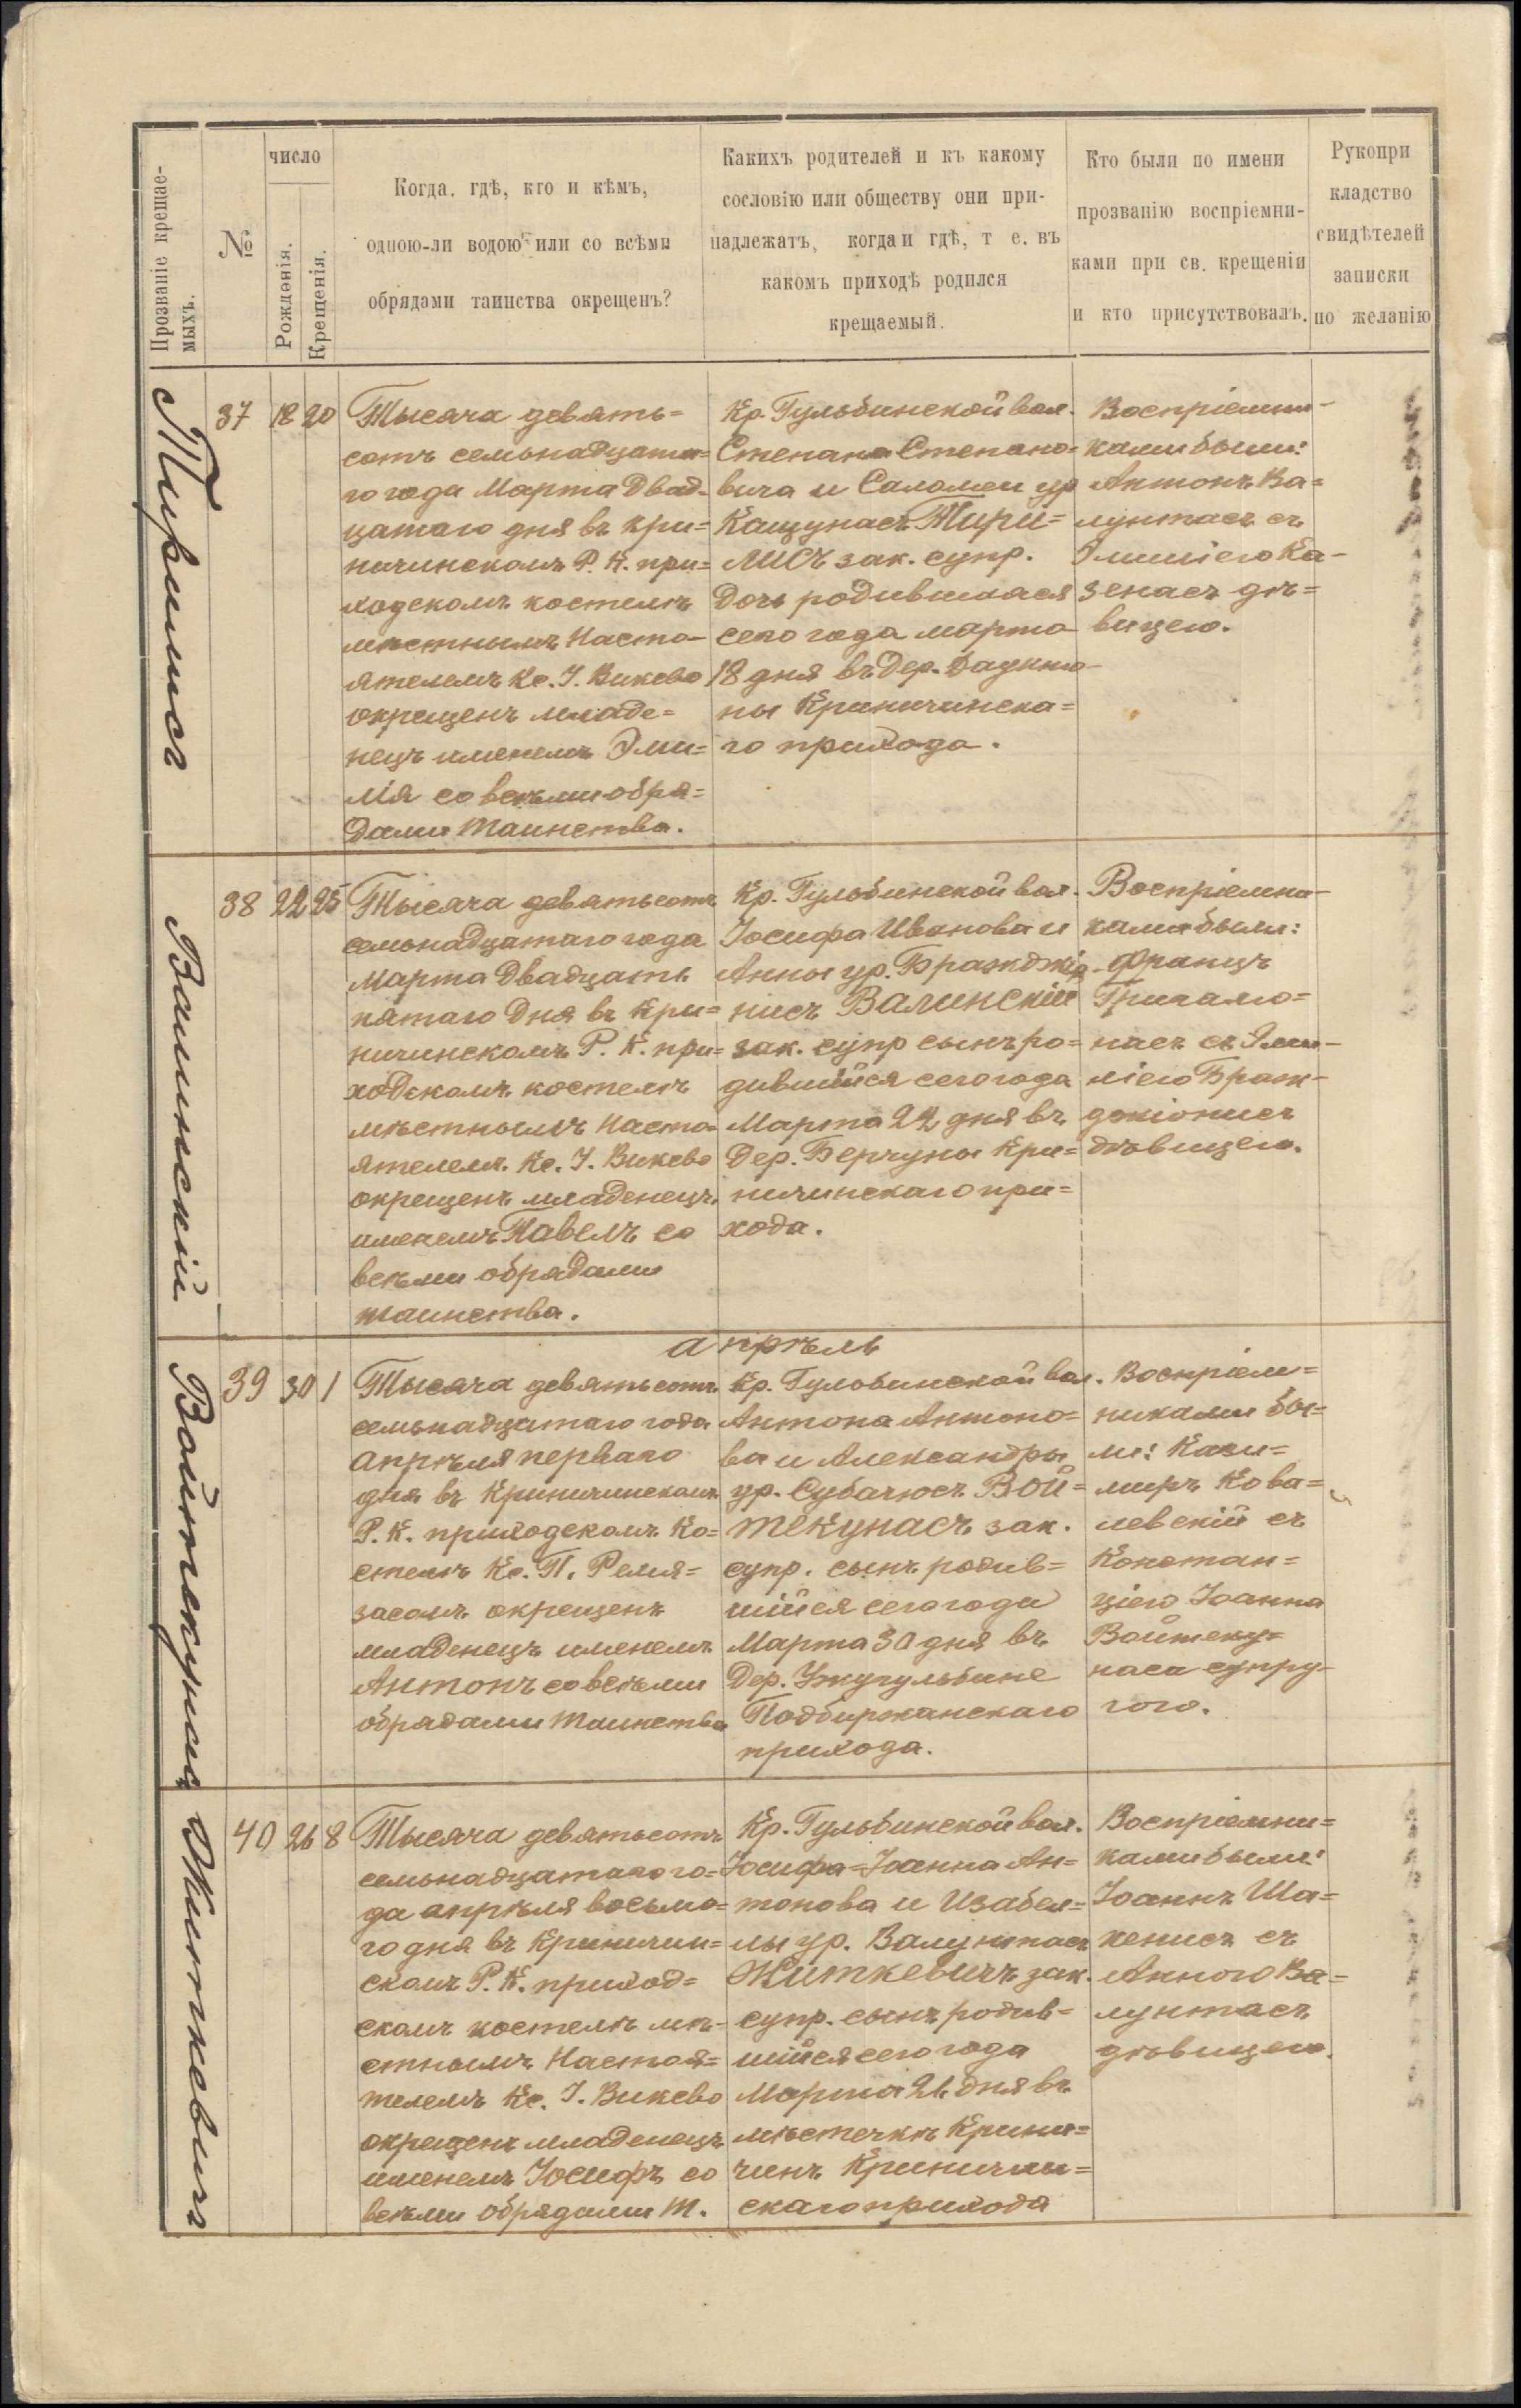 Прозваніе крещае-
мыхъ.
№
число
Рожденія.
Крещенія.
Когда, гдѣ, кто и кѣмъ,
одною-ли водою или со всѣми
обрядами таинства окрещенъ?
Какихъ родителей и къ какому
сословію или обществу они при-
надлежатъ, когда и гдѣ, т е. въ
какомъ приходѣ родился
крещаемый.
Кто были по имени
прозванію воспріемни-
ками при св. крещеніи
и кто присутствовалъ.
Рукопри
кладство
свидѣтелей
записки
по желанію
Тирилисъ
37
18
20
Тысяча девять=
сотъ семьнадцата=
го года Марта двад-
цатаго дня въ Кри=
ничинскомъ Р. К. при=
ходскомъ костелѣ
мѣстнымъ Насто-
ятелемъ Кс. І. Виксво
окрещенъ младе=
нецъ именемъ Эми=
лія со всѣми обря=
дами таинства.
Кр. Гульбинской вол.
Степана Степано-
вича и Саломеи ур
Кащунасъ Тири=
лисъ зак. супр.
дочь родившаяся
сего года марта
18 дня въ дер. Даукто-
ны Криничинска=
го прихода.
Воспріемни-
ками были:
Антонъ Ва=
лунтасъ съ
Эмиліею Ка-
зенасъ дѣ=
вицею.
Валинскій
38
22
25
Тысяча девятьсотъ
семьнадцатаго года
Марта двадцать
пятаго дня въ Кри=
ничинскомъ Р. К. при=
ходскомъ костелѣ
мѣстнымъ Насто-
ятелемъ Кс. І. Виксво
окрещенъ младенецъ
именемъ Павелъ со
всѣми обрядами
таинства.
Кр. Гульбинской вол.
Іосифа Иванова и
Анны ур. Бражджіо-
нисъ Валинскій
зак. супр сынъ ро=
дившійся сего года
Марта 22 дня въ
дер. Берчуны Кри=
ничинскаго при=
хода.
Воспріемни-
ками были:
Францъ
Григалю=
насъ съ Эми-
ліею Браж-
джіонисъ
дѣвицею.
апрѣль
Войтекунасъ
39
30
1
Тысяча девятьсотъ
семьнадцатаго года
апрѣля перваго
дня въ Криничинскомъ
Р. К. приходскомъ ко=
стелѣ Кс. П. Ремя=
засомъ окрещенъ
младенецъ именемъ
Антонъ со всѣми
обрядами таинства
Кр. Гульбинской вол.
Антона Антоно=
ва и Александры
ур. Субачюсъ Вой=
текунасъ зак.
супр. сынъ родив=
шійся сего года
Марта 30 дня въ
дер. Ужугульбине
Подбиржанскаго
прихода.
Воспріем=
никами бы=
ли: Кази=
миръ Кова=
левскій съ
Констан=
ціею Іоанна
Войтеку=
наса супру-
гою.
Житкевичъ
40
26
8
Тысяча девятьсотъ
семьнадцатаго го=
да апрѣля восьмо=
го дня въ Криничин=
скомъ Р. К. приход=
скомъ костелѣ мѣ-
стнымъ Настоя=
телемъ Кс. І. Виксво
окрещенъ младенецъ
именемъ Іосифъ со
всѣми обрядами т.
Кр. Гульбинской вол.
Іосифа=Іоанна Ан=
тонова и Изабел=
лы ур. Валунтасъ
Житкевичъ зак.
супр. сынъ родив=
шійся сего года
Марта 26 дня въ
мѣстечкѣ Крини=
чинъ Криничин=
скаго прихода
Воспріемни=
ками были:
Іоаннъ Ша=
кенисъ съ
Анною Ва=
лунтасъ
дѣвицею.